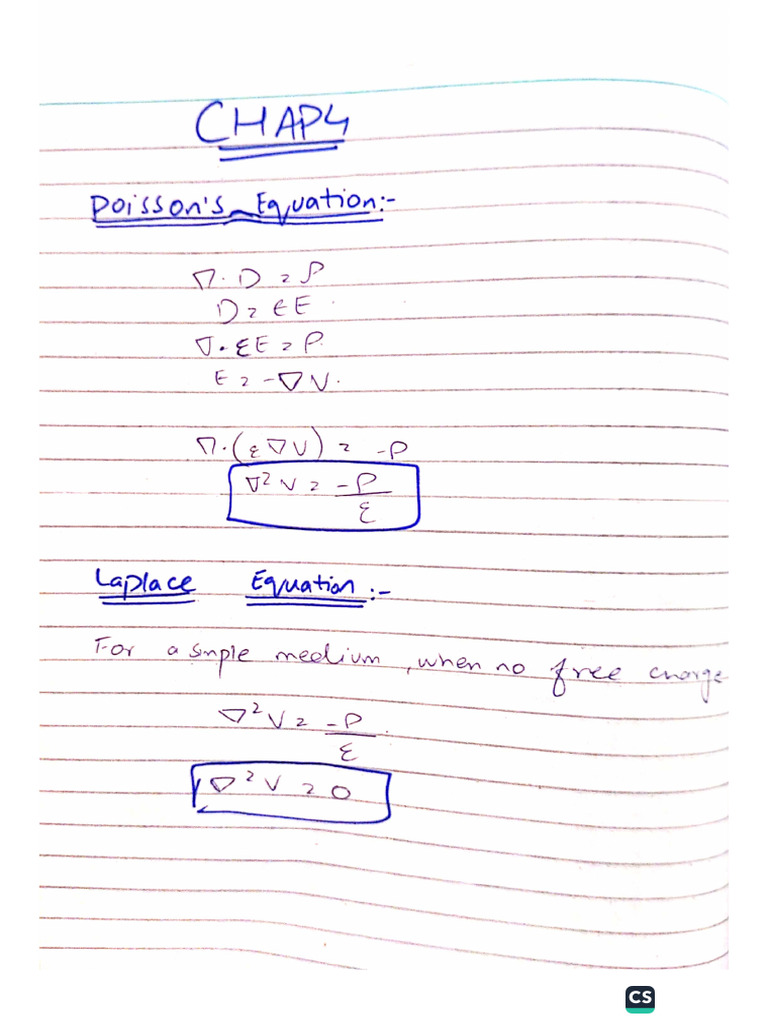 CHAP4
Poisson's Equation:-
∇. D = ρ
D = εE .
∇. εE = ρ.
E = -∇V.
∇.(ε∇V) = -ρ
∇²V = -ρ
ε
Laplace Equation:-
For a simple medium, when no free charge
∇²V = -ρ .
ε
∇²V = 0
CS